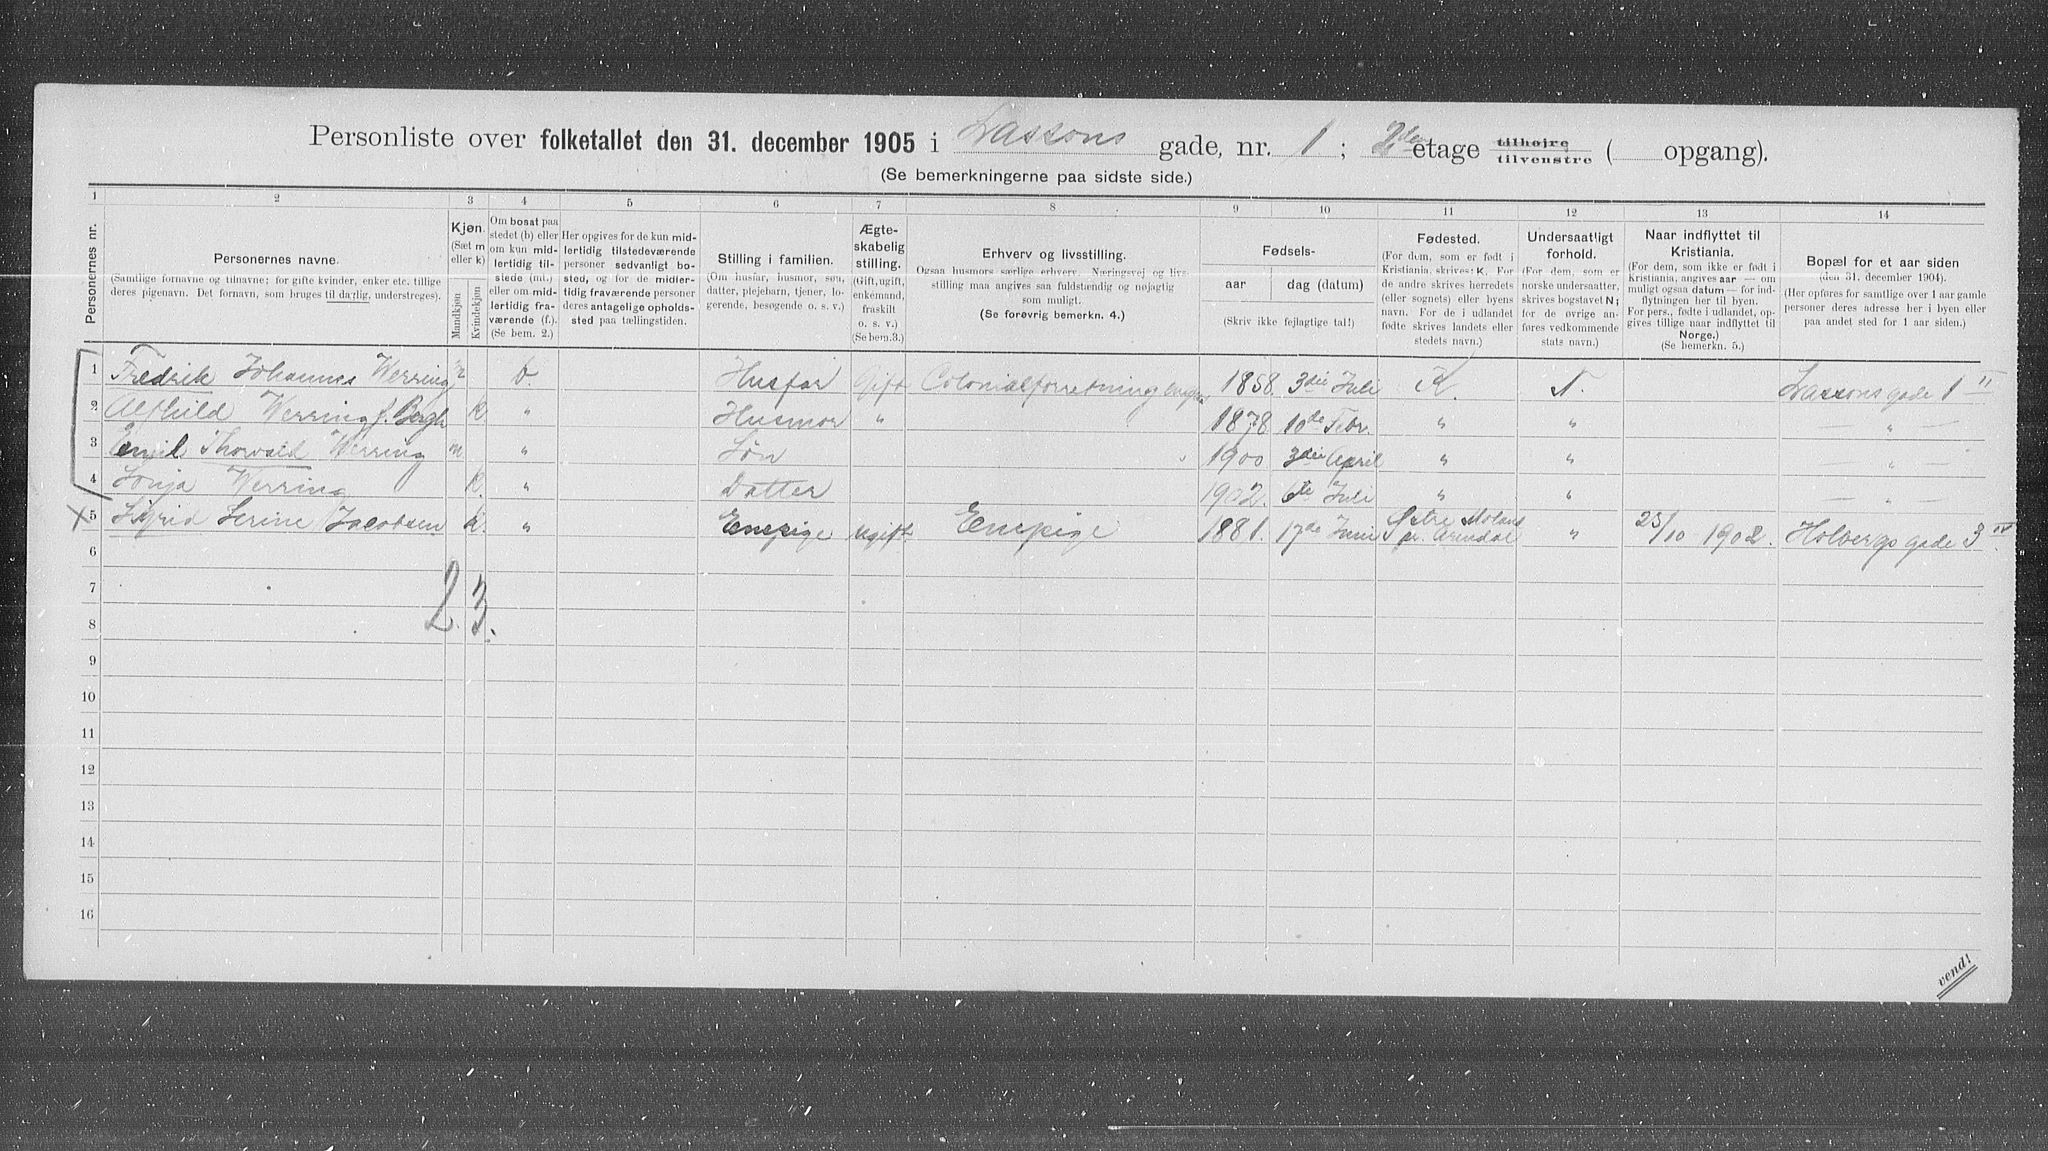 Personliste over folketallet den 31. december 1905 i Lassons gade, nr. 1; 2den etage tilhøjre tilvenstre ( opgang).
(Se bemerkningerne paa sidste side.)
1 2 3 4 5 6 7 8 9 10 11 12 13 14
Personernes nr.
Personernes navne.
(Samtlige fornavne og tilnavne; for gifte kvinder, enker etc. tillige
deres pigenavn. Det fornavn, som bruges til daglig, understreges).
Kjøn.
(Sæt m
eller k)
Mandkjøn
Kvindekjøn
Om bosat paa
stedet (b) eller
om kun mid-
lertidig til-
stede (mt.)
eller om mid-
lertidig fra-
værende (f.).
(Se bem. 2.)
Her opgives for de kun mid-
lertidig tilstedeværende
personer sedvanligt bo-
sted, og for de midler-
tidig fraværende personer
deres antagelige opholds-
sted paa tællingstiden.
Stilling i familien.
(Om husfar, husmor, søn,
datter, plejebarn, tjener, lo-
gerende, besøgende o. s. v.)
Ægte-
skabelig
stilling.
(Gift, ugift,
enkemand,
fraskilt
o. s. v.)
(Se bem.3.)
Erhverv og livsstilling.
Ogsaa husmors særlige erhverv. Næringsvej og livs-
stilling maa angives saa fuldstændig og nøjagtig
som muligt.
(Se forøvrig bemerkn. 4.)
Fødsels-
aar dag (datum)
(Skriv ikke fejlagtige tal!)
Fødested.
(For dem, som er født i
Kristiania, skrives: K. For
de andre skrives herredets
(eller sognets) eller byens
navn. For de i udlandet
fødte skrives landets eller
stedets navn.)
Undersaatligt
forhold.
(For dem, som er
norske undersaatter,
skrives bogstavet N;
for de øvrige an-
føres vedkommende
stats navn.)
Naar indflyttet til
Kristiania.
(For dem, som ikke er født i
Kristiania, angives aar — om
muligt ogsaa datum — for ind-
flytningen her til byen.
For pers., fødte i udlandet, op-
gives tillige naar indflyttet til
Norge.)
(Se bemerkn. 5.)
Bopæl for et aar siden
(den 31. december 1904).
(Her opføres for samtlige over 1 aar gamle
personer deres adresse her i byen eller
paa andet sted for 1 aar siden.)
1 Fredrik Johannes Werring m b. Husfar Gift Colonialforretning 1858 3die Juli K. N. Lassons gade 1 II
2 Alfhild Werring f. Bergh K " Husmor " 1878 10de Febr. " " — " —
3 Emil Thorvald Werring m " Søn 1900 3die April " " — " —
4 Sonja Werring K. " Datter 1902. 6te Juli " " — " —
X 5 Sigrid Serine Jacobsen K. " Enepige ugift Enepige 1881. 17de Juni Østre Moland pr. Arendal " 25/10 1902. Holbergs gade 3 IV
6
2. 3.
7
8
9
10
11
12
13
14
15
16
vend!